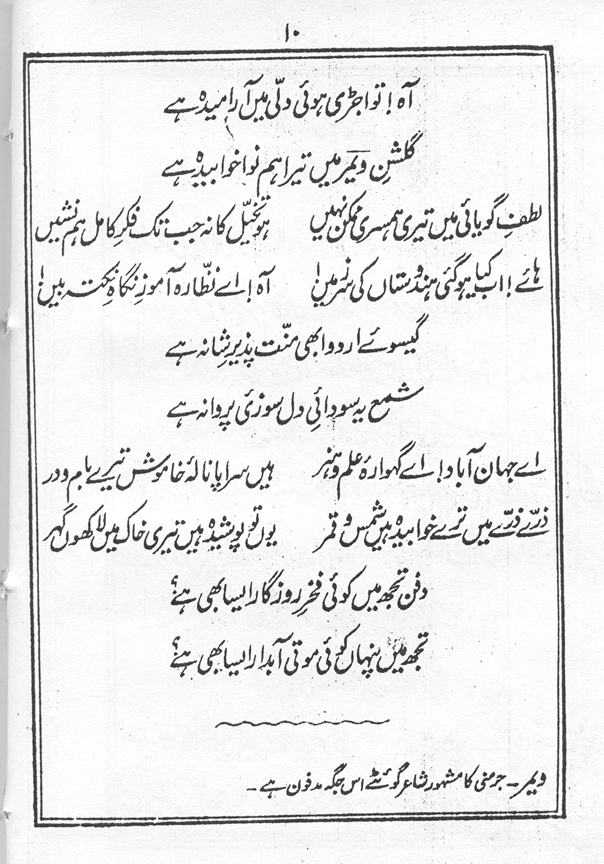 ۱۰
آہ! تو اجڑی ہوئی دلّی میں آرامیدہ ہے
گلشنِ ویمر میں تیرا ہم نوا خوابیدہ ہے
لطفِ گویائی میں تیری ہمسری ممکن نہیں ہو تخیّل کا نہ جب تک فکرِ کامل ہم نشیں
ہائے! اب کیا ہو گئی ہندوستاں کی سرزمیں! آہ! اے نظّارہ آموزِ نگاہِ نکتہ بیں!
گیسوئے اردو ابھی منّت پذیرِ شانہ ہے
شمع یہ سودائیِ دل سوزئ پروانہ ہے
اے جہان آباد! اے گہوارۂ علم و ہنر ہیں سراپا نالۂ خاموش تیرے بام و در
ذرّے ذرّے میں ترے خوابیدہ ہیں شمس و قمر یوں تو پوشیدہ ہیں تیری خاک میں لاکھوں گہر
دفن تجھ میں کوئی فخرِ روزگار ایسا بھی ہے؟
تجھ میں پنہاں کوئی موتی آبدار ایسا بھی ہے؟
ویمر۔ جرمنی کا مشہور شاعر گوئٹے اس جگہ مدفون ہے۔